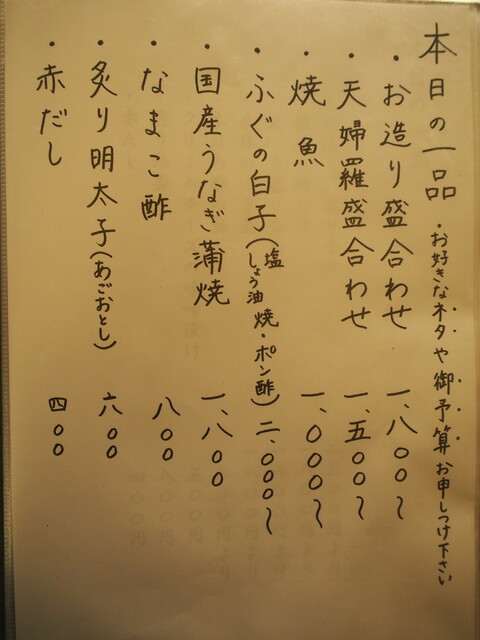 本日の一品 ・お好きなネタや御予算お申しつけ下さい
・お造り盛合わせ 一、八〇〇〜
・天婦羅盛合わせ 一、五〇〇〜
・焼魚 一、〇〇〇〜
・ふぐの白子(塩しょう油焼・ポン酢) 二、〇〇〇〜
・国産うなぎ蒲焼 一、八〇〇
・なまこ酢 八〇〇
・炙り明太子(あごおとし) 六〇〇
・赤だし 四〇〇